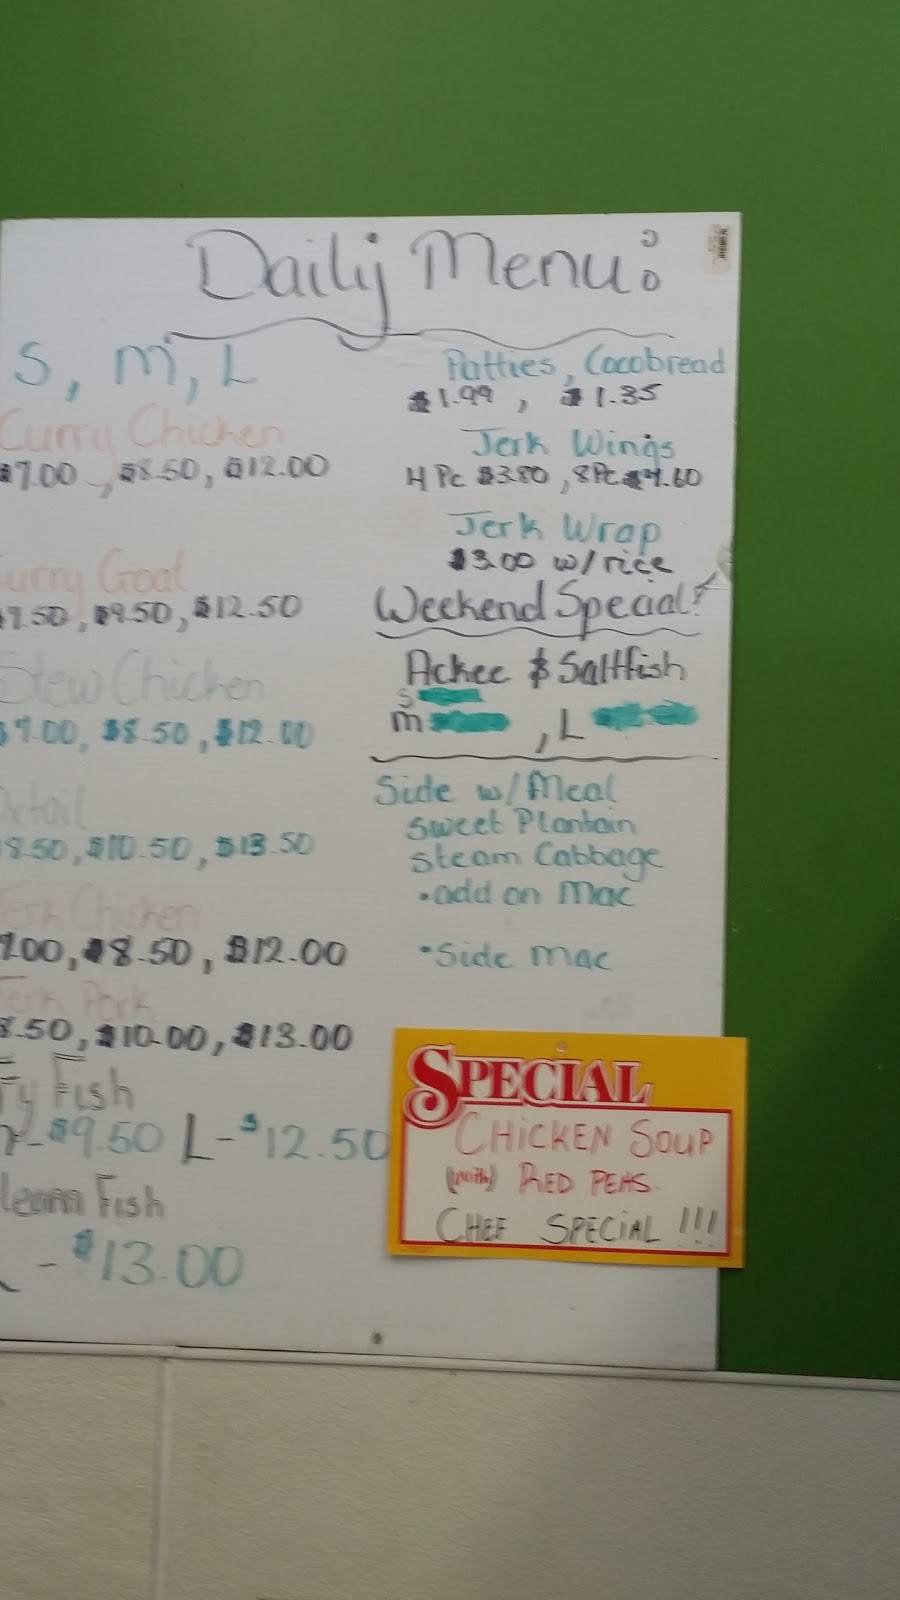 Daily Menu:
S, M, L
Curry Chicken
$7.00, $8.50, $12.00
Curry Goat
$7.50, $9.50, $12.50
Stew Chicken
$7.00, $8.50, $12.00
Oxtail
8.50, $10.50, $13.50
Jerk Chicken
7.00, $8.50, $12.00
Jerk Pork
8.50, $10.00, $13.00
Fry Fish
- $9.50 L - $12.50
Steam Fish
L - $13.00
Patties, Cocobread
$1.99, $1.35
Jerk Wings
4 Pc $3.80, 8 Pc
Jerk Wrap
$3.00 w/rice
Weekend Special!
Ackee & Saltfish
S
M , L
Side w/Meal
Sweet Plantain
Steam Cabbage
• add on Mac
• Side Mac
SPECIAL
CHICKEN SOUP
(with) RED PEAS.
CHEF SPECIAL !!!